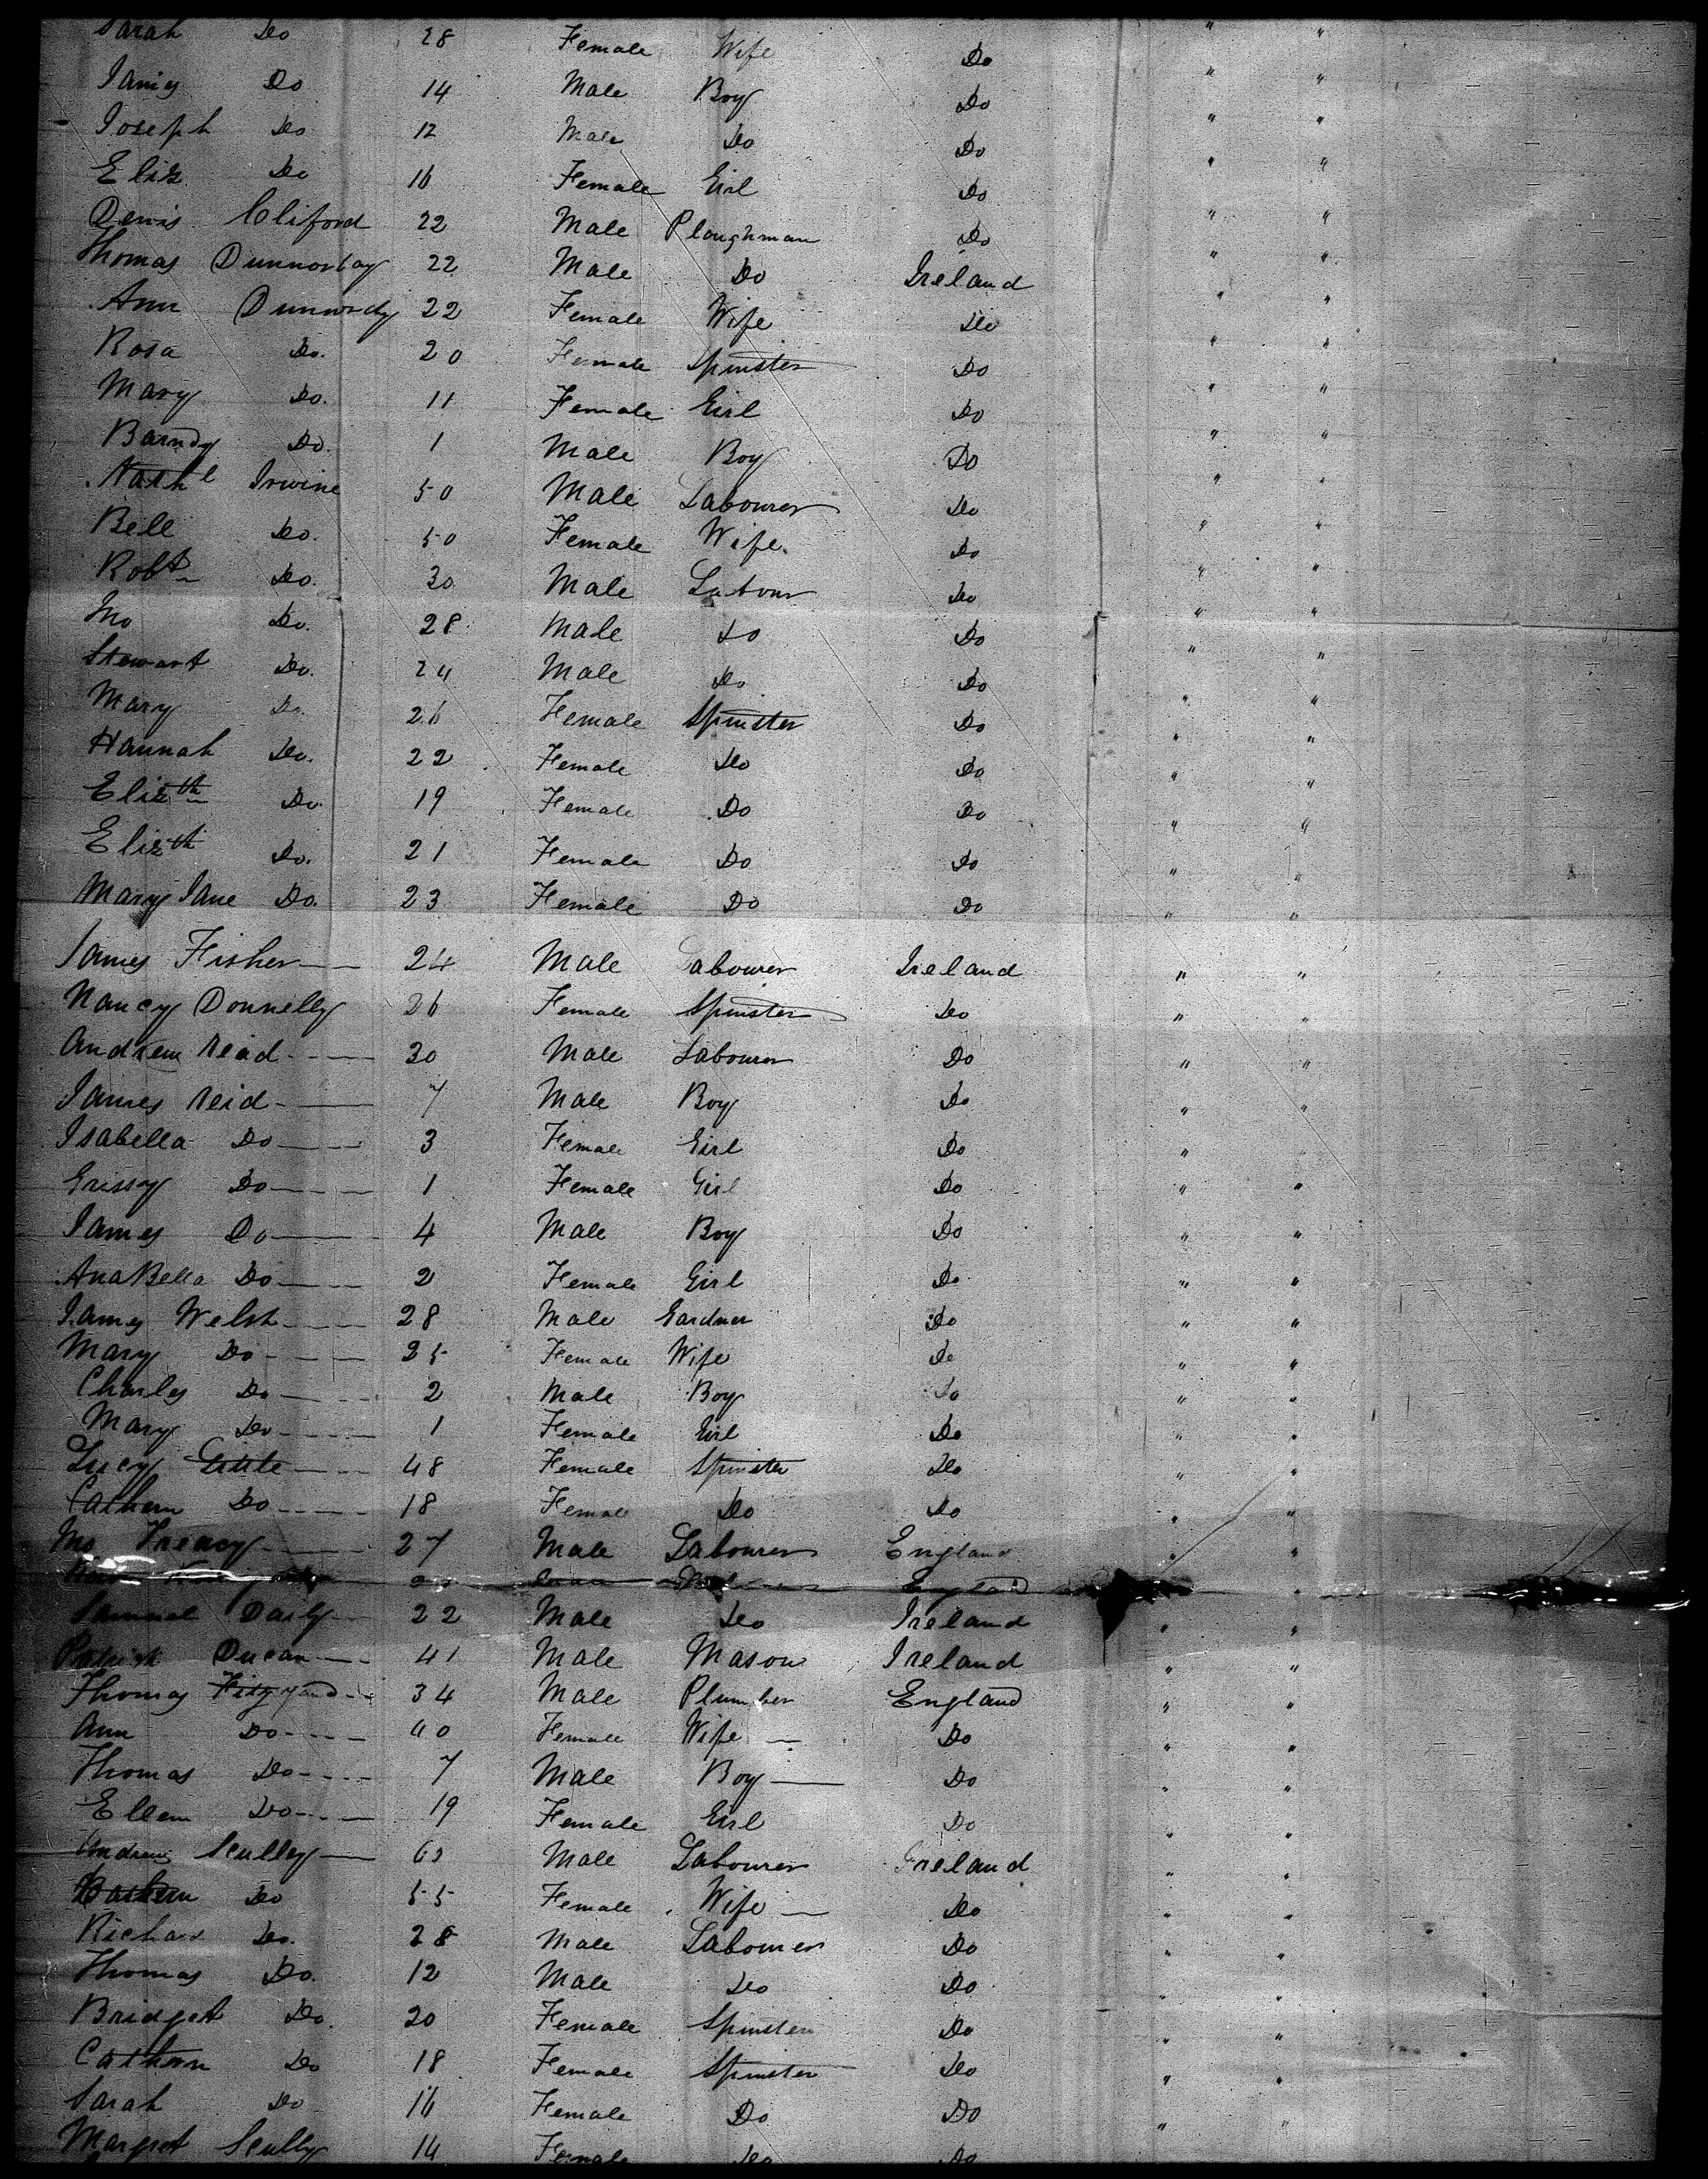 Sarah Do 28 Female Wife Do " "
James Do 14 Male Boy Do " "
Joseph Do 12 Male Do Do " "
Eliz Do 16 Female Girl Do " "
Denis Cliford 22 Male Ploughman Do " "
Thomas 22 Male Do Ireland " "
Ann Dunnordy 22 Female Wife Do " "
Rosa Do. 20 Female Spinster Do " "
Mary Do. 11 Female Girl Do " "
Barndy Do. 1 Male Boy Do " "
Nathl Irwine 50 Male Labourer Do " "
Bell Do. 50 Female Wife Do " "
Robt Do. 30 Male Labour Do " "
Jno Do. 28 Male Do Do " "
Stewart Do. 24 Male Do Do " "
Mary Do. 26 Female Spinster Do " "
Hannah Do. 22 Female Do Do " "
Elizth Do. 19 Female Do Do " "
Elizth Do. 21 Female Do Do " "
Mary Jane Do. 23 Female Do Do " "
James Fisher 24 Male Labourer Ireland " "
Nancy Donnelly 26 Female Spinster Do " "
Andrew Reid 30 Male Labourer Do " "
James Reid 7 Male Boy Do " "
Isabella Do 3 Female Girl Do "
Grissy Do 1 Female Girl Do " "
James Do 4 Male Boy Do " "
AnaBella Do 2 Female Girl Do " "
James Welsh 28 Male Gardner Do " "
Mary Do 25 Female Wife Do " "
Charles Do 2 Male Boy Do " "
Mary Do 1 Female Girl Do " "
Lucy Little 48 Female Spinster Do " "
Cathern Do 18 Female Do Do " "
Jno Treacy 27 Male Labourer England " "
England "
Samuel Daily 22 Male Do Ireland " "
Patrick Ducan 41 Male Mason Ireland " "
Thomas 34 Male Plumber England " "
Ann Do 40 Female Wife Do " "
Thomas Do 7 Male Boy Do " "
Ellen Do 19 Female Girl Do " "
Andrew Sculley Male Labourer Ireland " "
Do 55 Female Wife Do " "
Richard Do. 28 Male Labourer Do " "
Thomas Do. 12 Male Do Do " "
Bridget Do. 20 Female Spinster Do " "
Cathern Do 18 Female Spinster Do " "
Sarah Do 16 Female Do Do " "
Margret Scully 14 Female Do Do